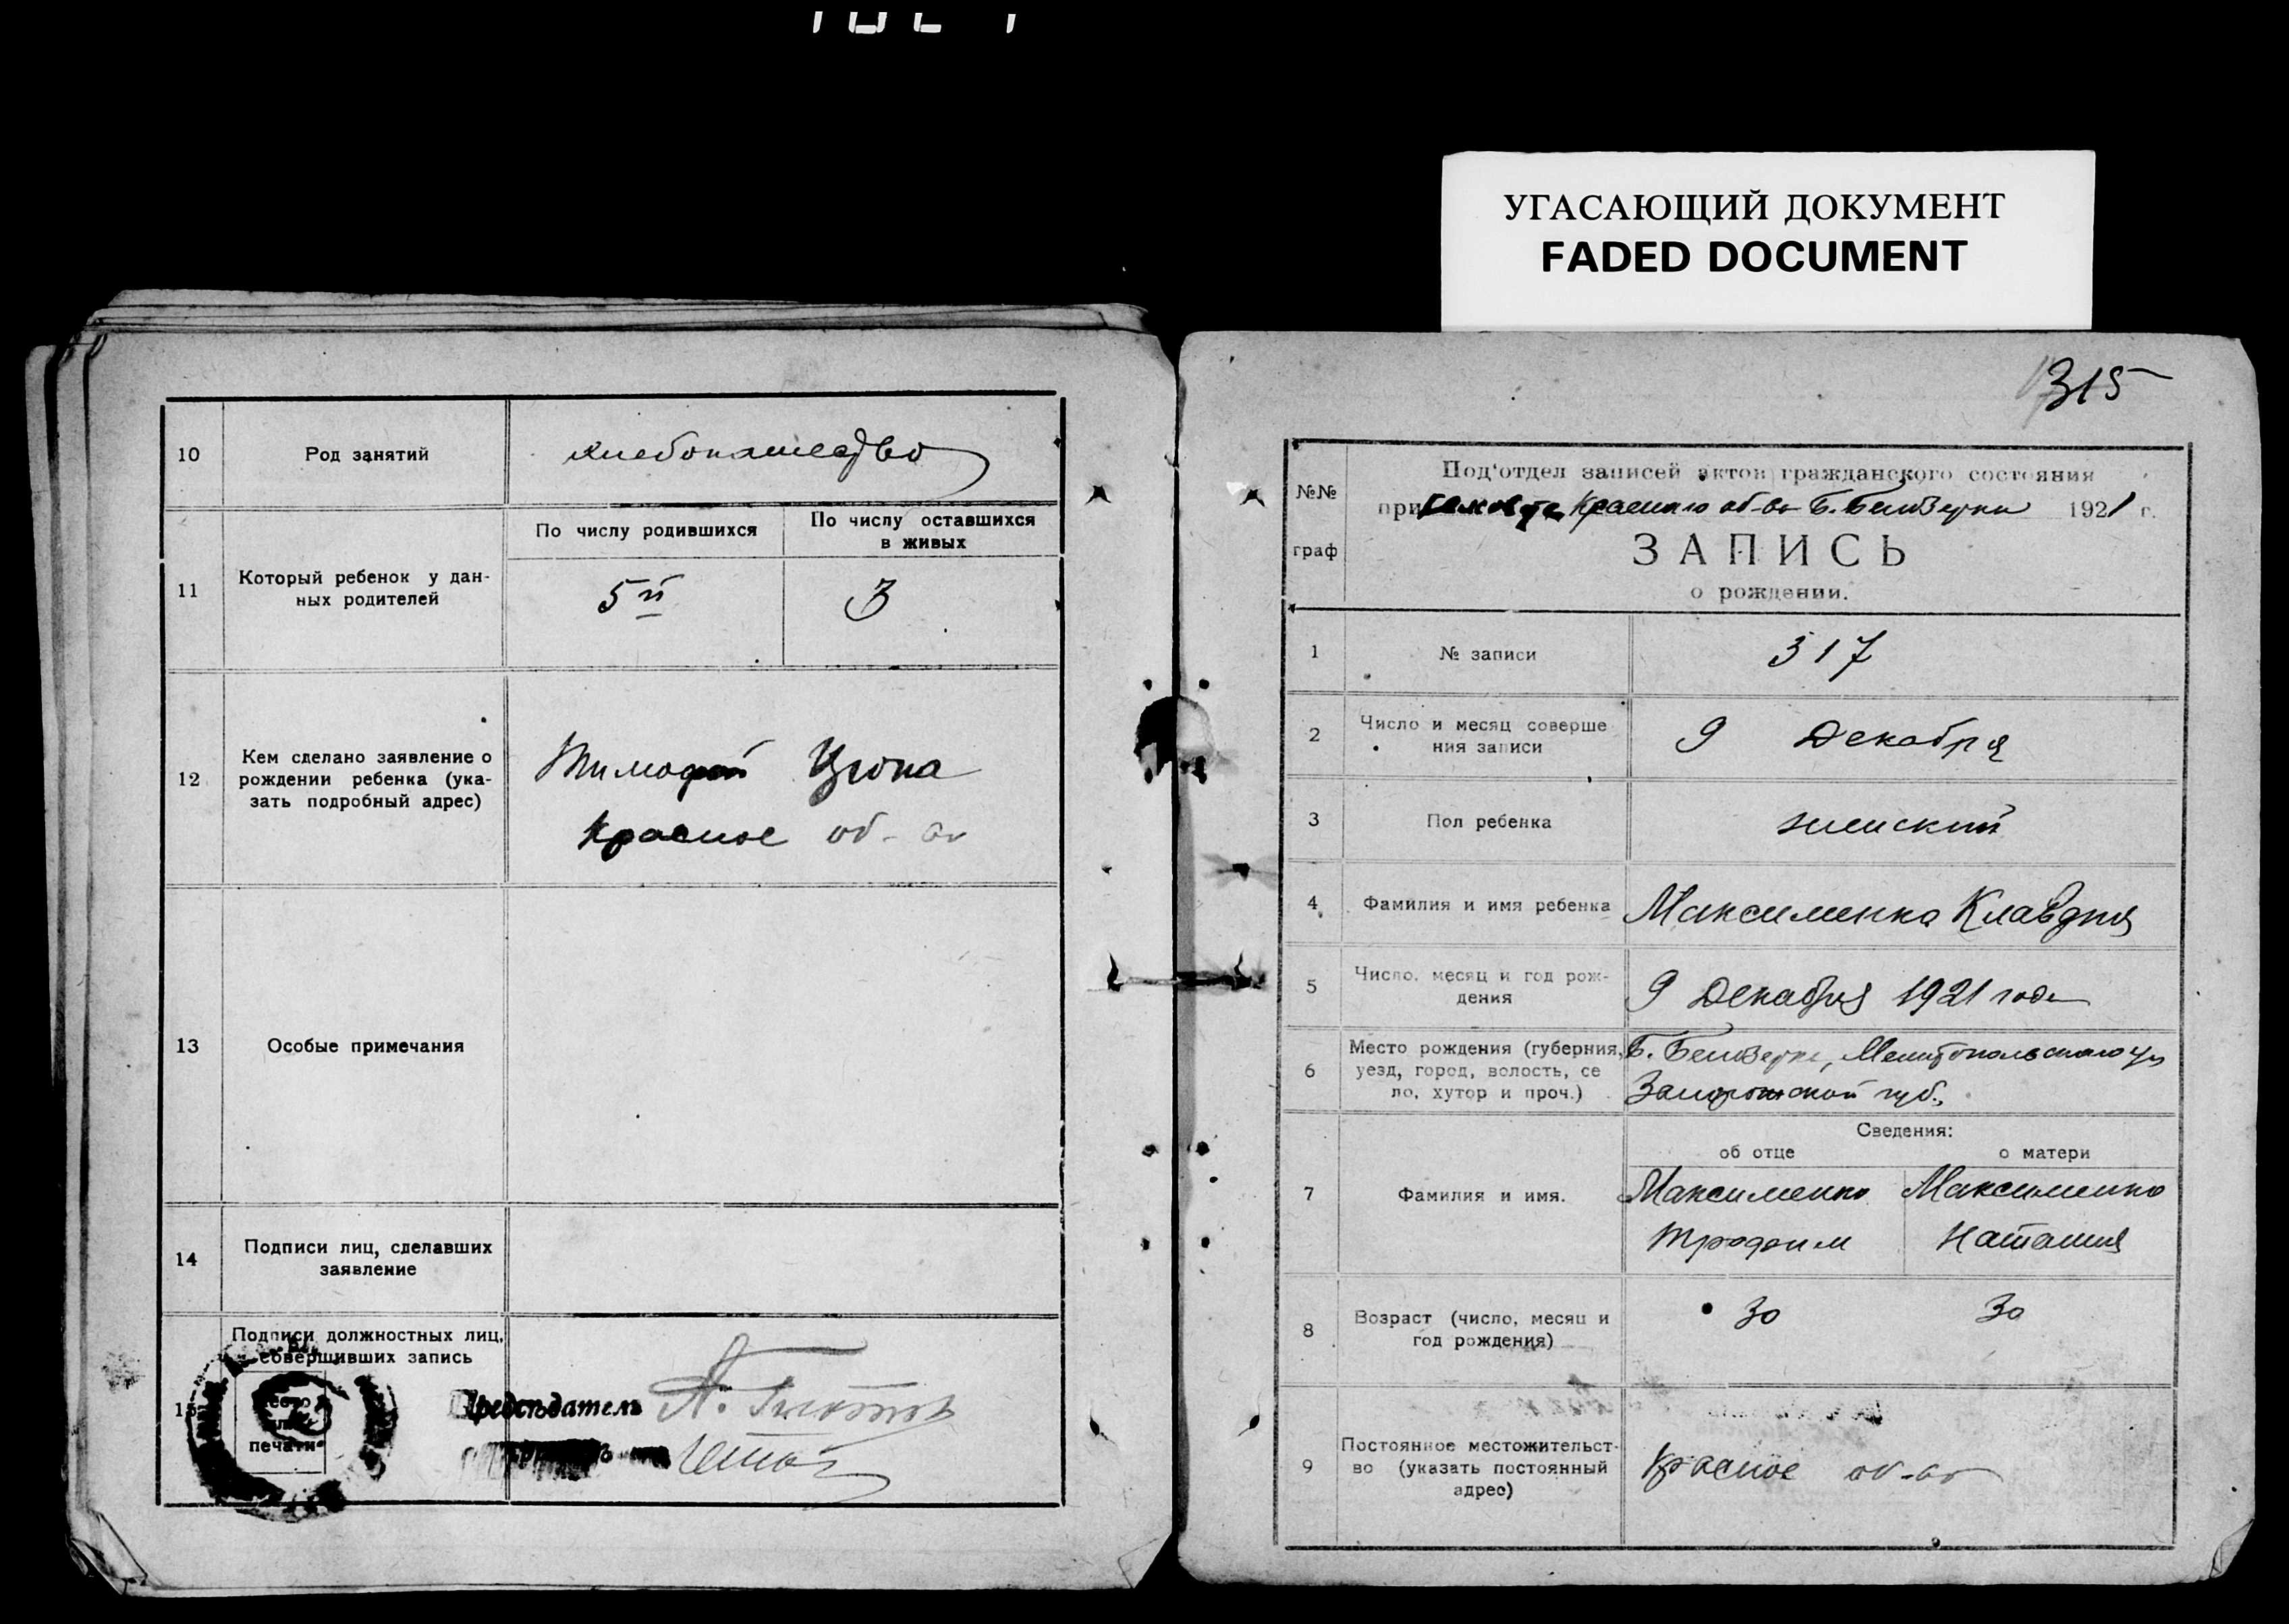 УГАСАЮЩИЙ ДОКУМЕНТ
FADED DOCUMENT
10
Род занятий
хлебопашество
11
Который ребенок у дан-
ных родителей
По числу родившихся
По числу оставшихся
в живых
5й
3
12
Кем сделано заявление о
рождении ребенка (ука-
зать подробный адрес)
Тимофей Цюпа
Красное об-во
13
Особые примечания
14
Подписи лиц, сделавших
заявление
15
Подписи должностных лиц,
совершивших запись
печати
Председатель
315
№№
граф
Под'отдел записей актов гражданского состояния
при Красного об-ва Б. Белозерки 1921 г.
ЗАПИСЬ
о рождении.
1
№ записи
317
2
Число и месяц соверше
ния записи
9 Декабря
3
Пол ребенка
женский
4
Фамилия и имя ребенка
Максименко Клавдия
5
Число, месяц и год рож-
дения
9 Декабря 1921 года
6
Место рождения (губерния,
уезд, город, волость, се
ло, хутор и проч.)
Б. Белозерка, Мелитопольского у.
Запорожской губ.,
Сведения:
об отце
о матери
7
Фамилия и имя.
Максименко
Трофим
Максименко
Наталия
8
Возраст (число, месяц и
год рождения)
30
30
9
Постоянное местожительст-
во (указать постоянный
адрес)
Красное об-во